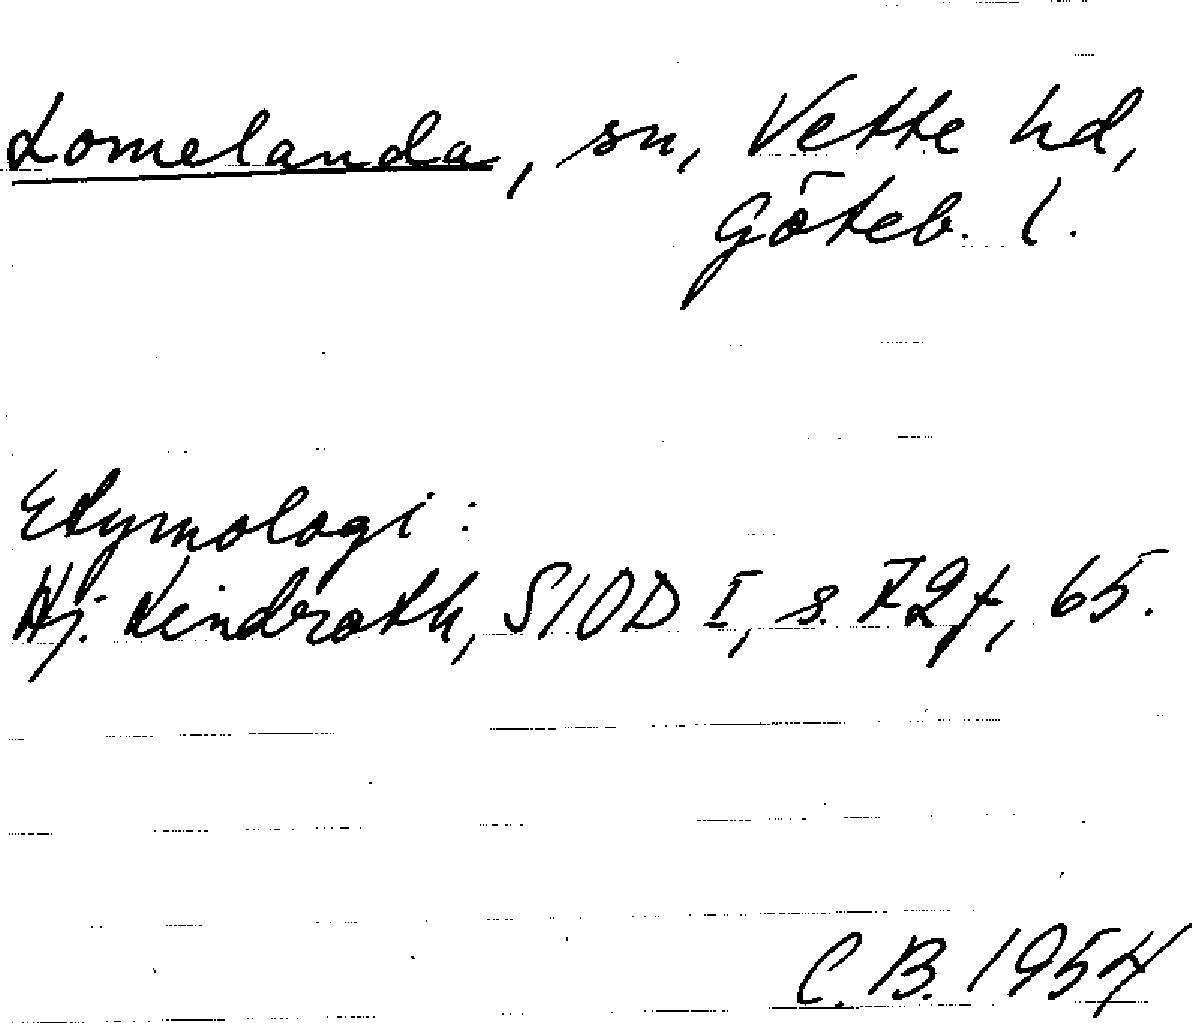 Lomelanda, sn, Vette hd,
Göteb. l.
Etymologi:
Hj. Lindroth, SIOD I, s. 72f, 65.
C.B. 1954